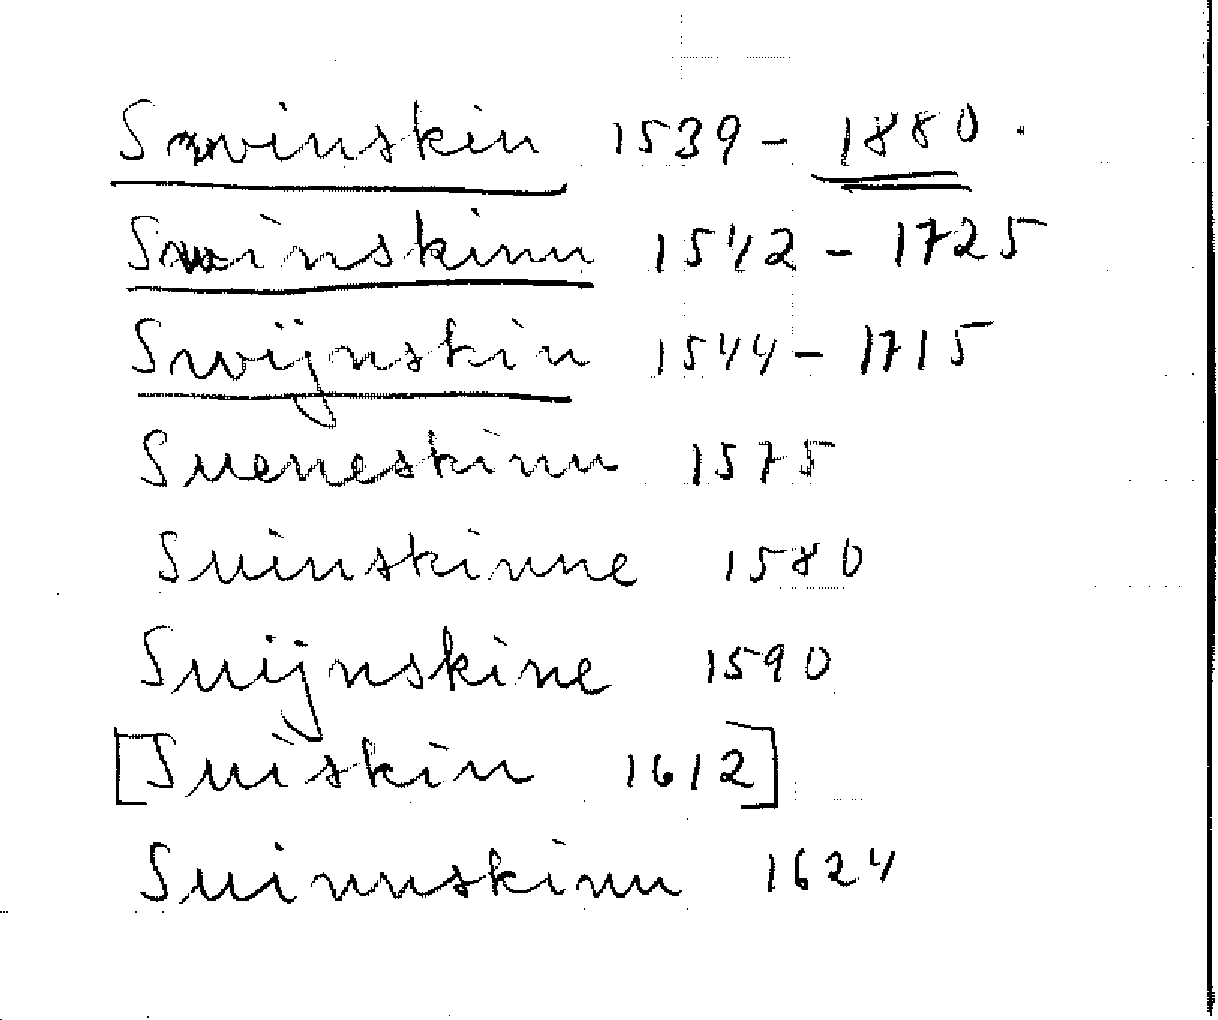 Swinskin 1539 - 1880.
Swinskinn 1542 - 1725
Swijnskin 1544 - 1715
Sueneskinn 1575
Suinskinne 1580
Suijnskine 1590
[Suiskin 1612]
Suinnskinn 1624